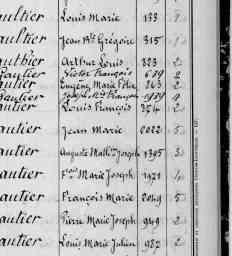 aultier Louis Marie 133 2
aultier Jean Bte Grégoire 315 1
authier Arthur Louis 323 2
Gautier Victor François 689 2
autier Eugène Marie Félix 263 2
Gautier François 1929
autier Louis François 324 2
autier Jean Marie 2022 5
autier Auguste Math. Joseph 1395 3
autier Fçois Marie Joseph 1921 4
autier François Marie 2049 5
autier Pierre Marie Joseph 949 2
autier Louis Marie Julien 982 2